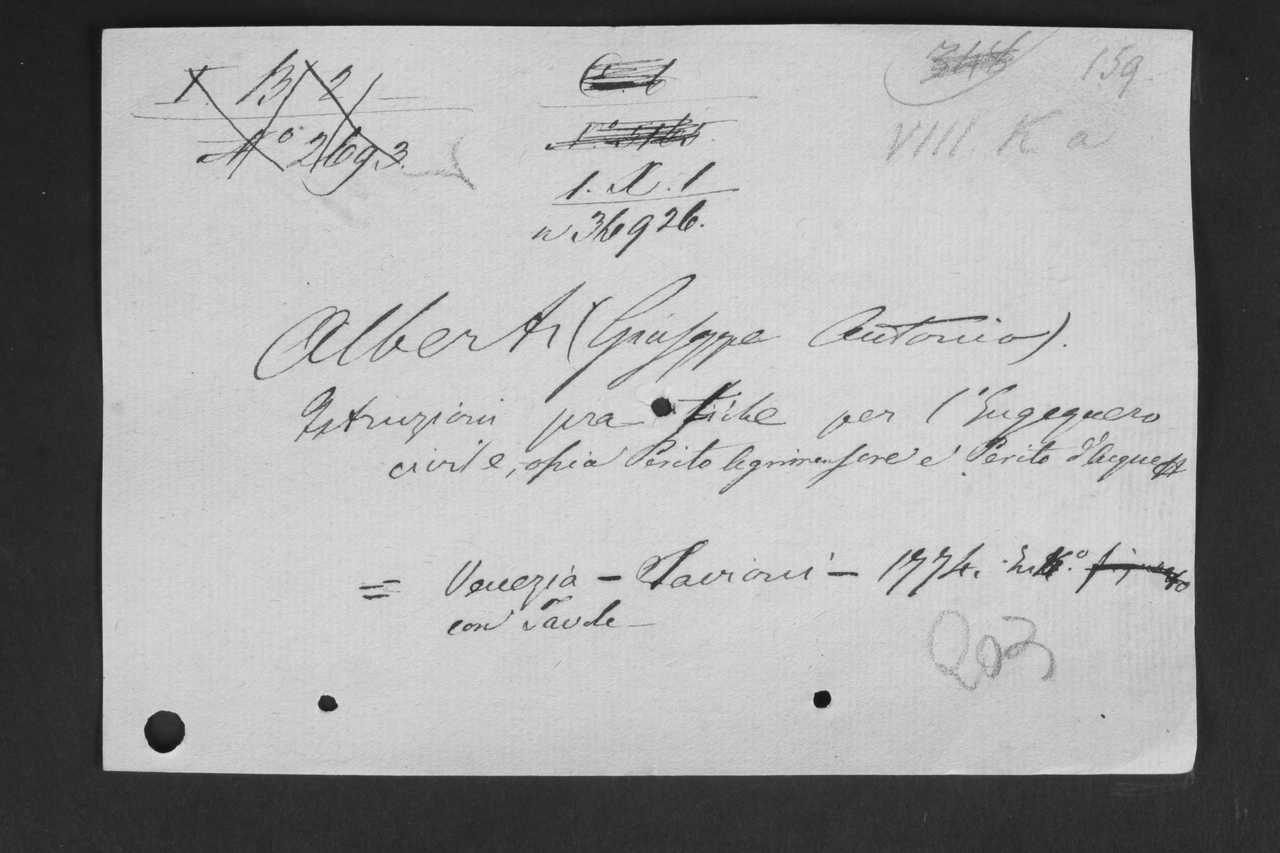 I. B. 21
N.º 2693.
159
VIII. K. a
1. X. 1
n 36926.
Alberti (Giuseppe Antonio).
Istruzioni pratiche per l'Ingegnero
civile, osia Perito agrimensore e Perito d'Acque
= Venezia - Savioni - 1774. In 4.º
con Tavole -
203